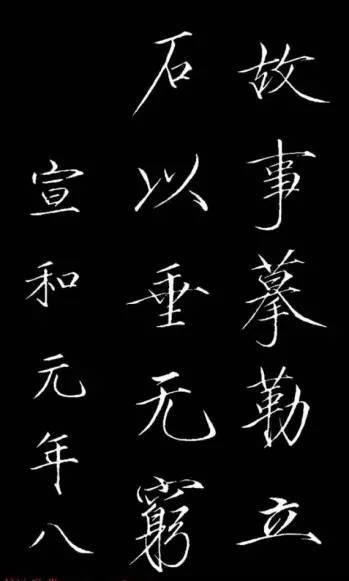 故事摹勒立
石以垂无穷
宣和元年八